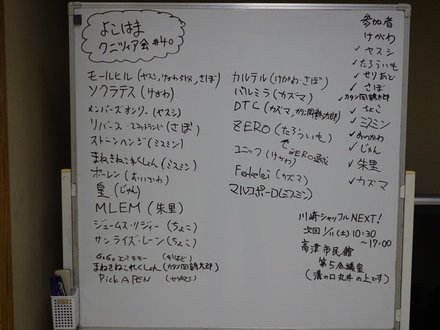 よこはま
クニツィア会 #40
モールヒル(ヤスシ,けがわ,たろう,さぼ)
ソクラテス(けがわ)
メンバーズオンリー(ヤスシ)
リバース・スコットランド(さぼ)
ストーンヘンジ(ミスミン)
まねきねこれくしょん(ミスミン)
ポーレン(おいかわ)
皇(じゅん)
MLEM(朱里)
ジェームス・リジィー(ちょこ)
サンライズ・レーン(ちょこ)
まねきねこれくしょん(カタン岡鶴太郎)
Pick A PEN
カルテル(けがわ・さぼ)
パルミラ(カズマ)
DTC(カズマ,カタン岡鶴太郎)
ZERO(たろういも)
でZERO達成
ユニック(けがわ)
(カズマ)
マルコポーロ(ミスミン)
参加者
けがわ
ヤスシ
たろういも
せりあど
さぼ
カタン岡鶴太郎
ちょこ
ミスミン
おいかわ
じゅん
朱里
カズマ
川崎シャッフル NEXT!
次回 1/11(土) 10:30
~17:00
高津市民館
第5会議室
(溝の口丸井の上です)